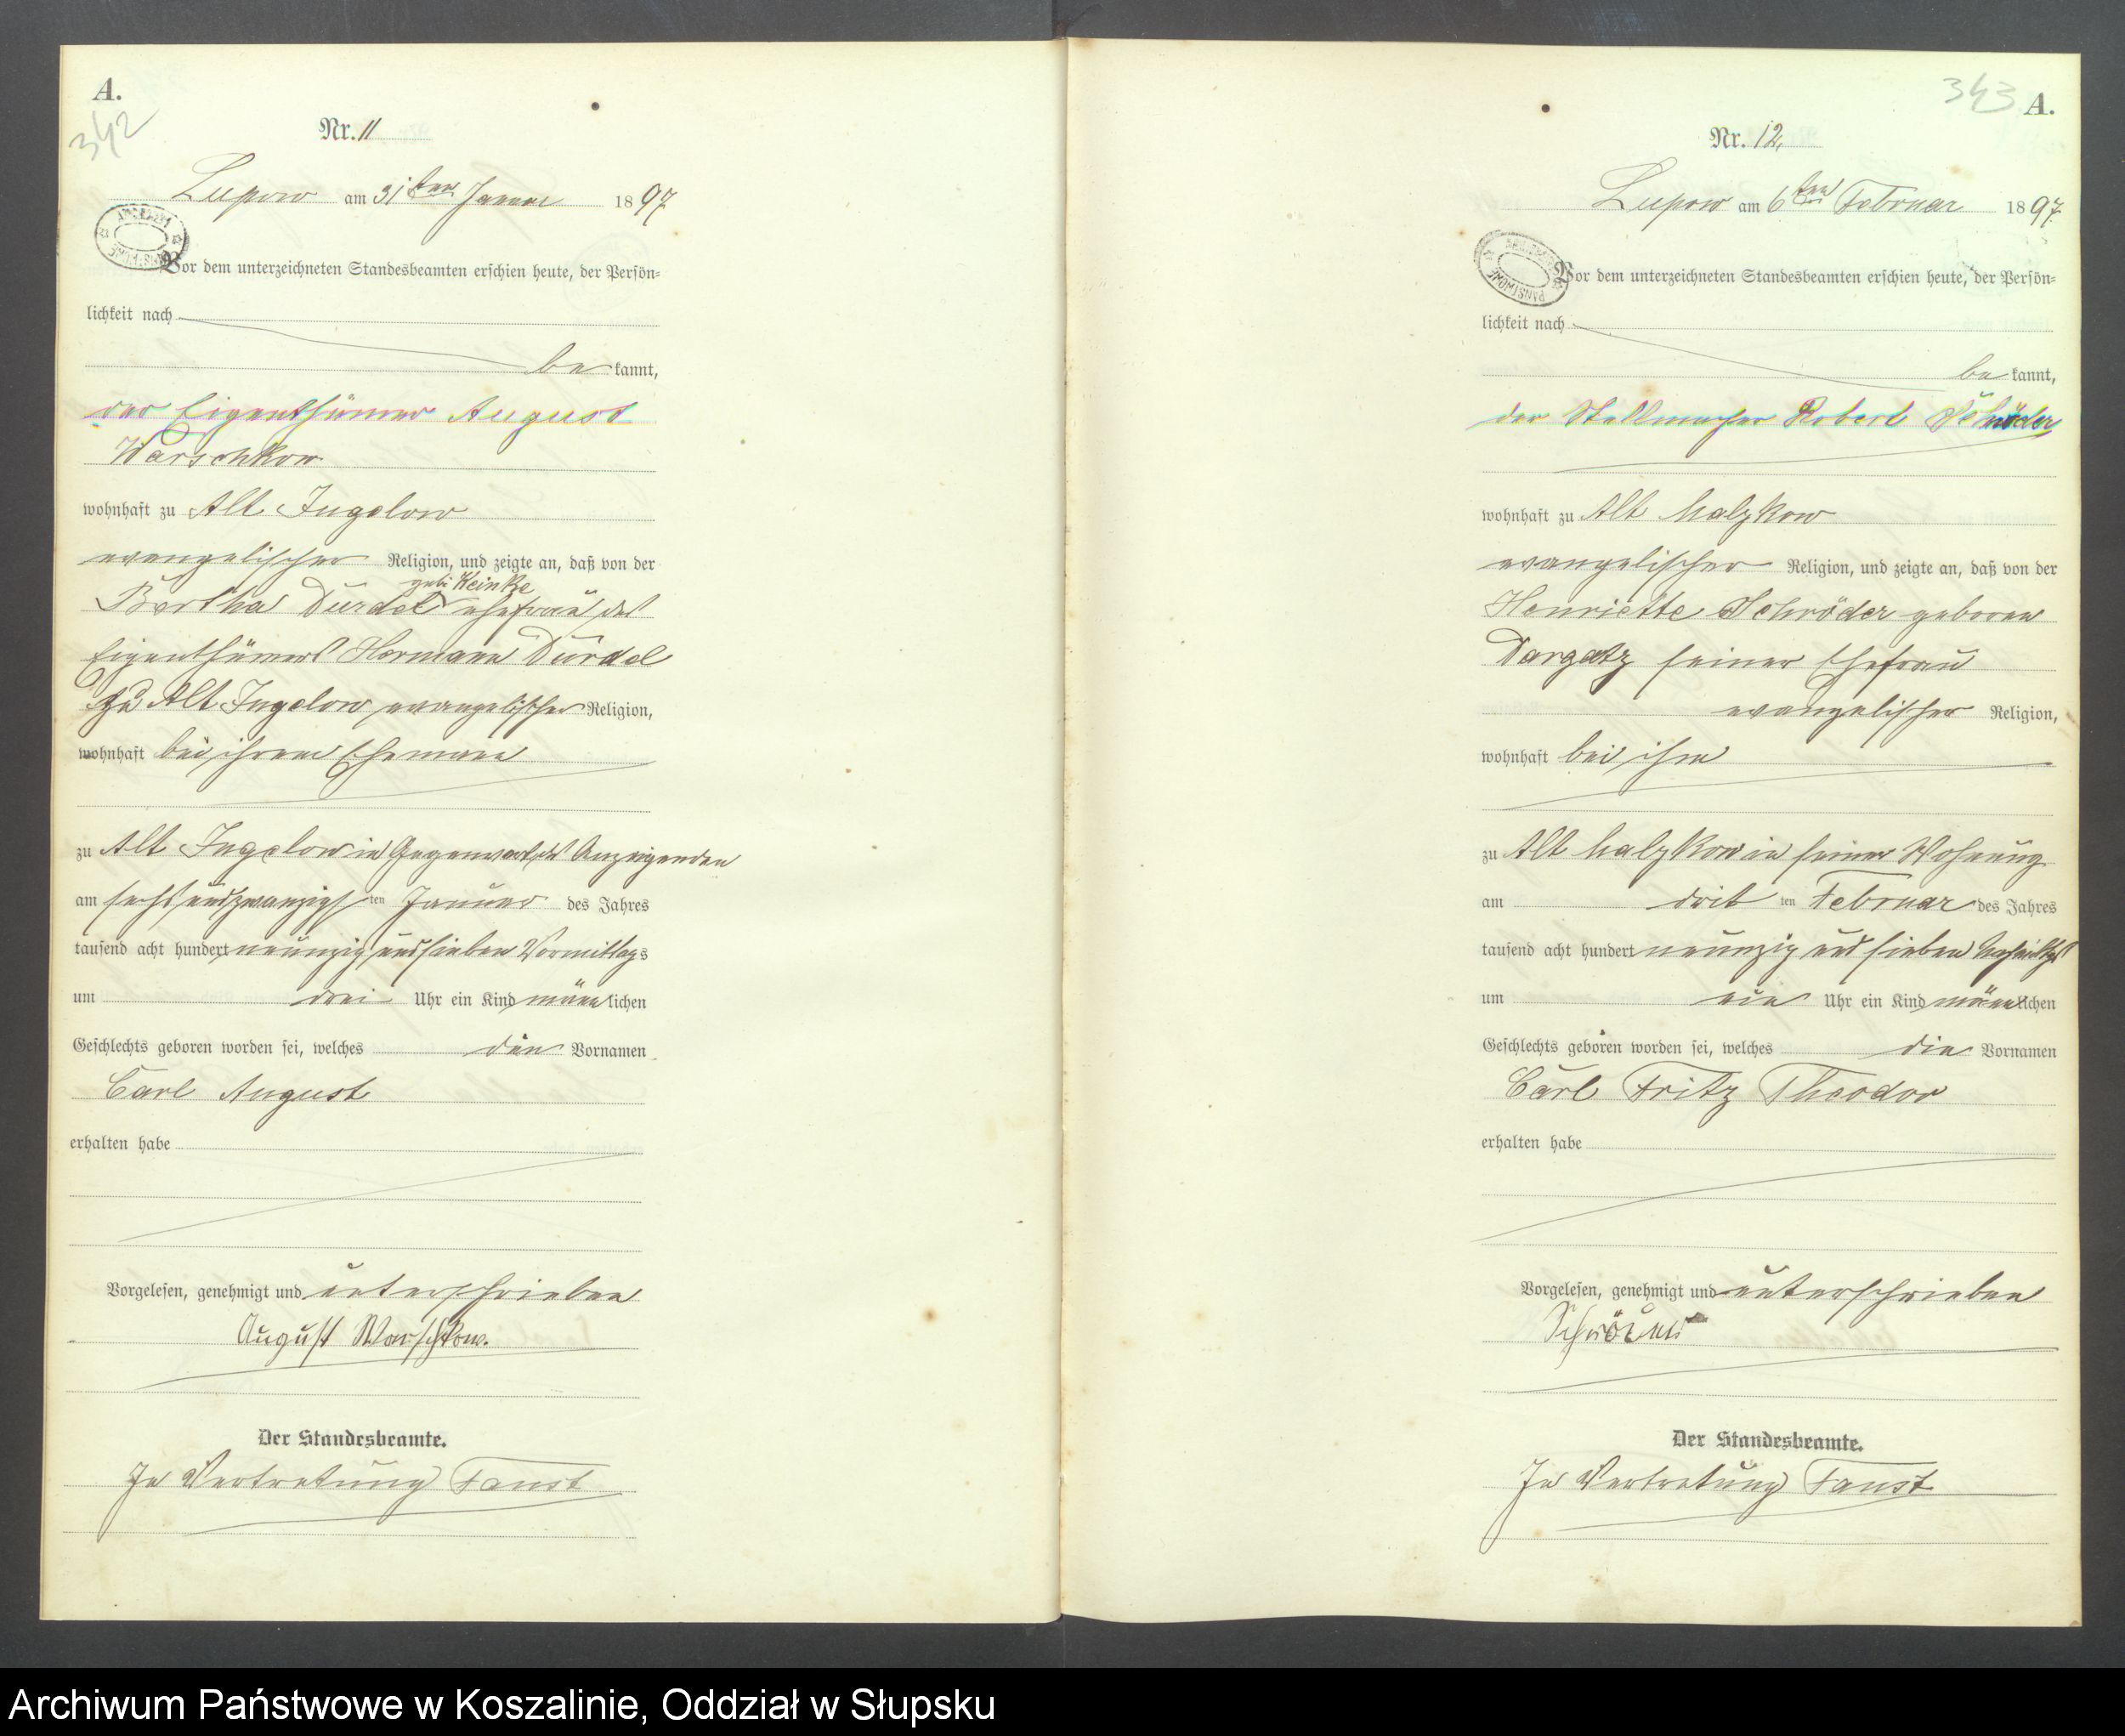 A.
342
Nr. 11
Lupow am 31ten Januar 1897
Vor dem unterzeichneten Standesbeamten erschien heute, der Persön=
lichkeit nach
be kannt,
der Eigenthümer August
Warschkow
wohnhaft zu Alt Jugelow
evangelischer Religion, und zeigte an, daß von der
geb. Reinke
Bertha Dürdel Ehefrau des
Eigenthümers Hermann Dürdel
zu Alt Jugelow, evangelischer Religion,
wohnhaft bei ihrem Ehemann
zu Alt Jugelow in Gegenwart des Anzeigenden
am sechs und zwanzigsten Januar des Jahres
tausend acht hundert neunzig und sieben Vormittags
um drei Uhr ein Kind männlichen
Geschlechts geboren worden sei, welches die Vornamen
Carl August
erhalten habe
Vorgelesen, genehmigt und unterschrieben
August Warschkow.
Der Standesbeamte.
In Vertretung Faust
343 A.
Nr. 12.
Lupow am 6ten Februar 1897.
Vor dem unterzeichneten Standesbeamten erschien heute, der Persön=
lichkeit nach
be kannt,
der Stellmacher Robert Schröder
wohnhaft zu Alt Malzkow
evangelischer Religion, und zeigte an, daß von der
Henriette Schröder geboren
Dargatz seiner Ehefrau
evangelischer Religion,
wohnhaft bei ihm
zu Alt Malzkow in seiner Wohnung
am dritten Februar des Jahres
tausend acht hundert neunzig und sieben Nachmittags
um ein Uhr ein Kind männlichen
Geschlechts geboren worden sei, welches die Vornamen
Carl Fritz Theodor
erhalten habe
Vorgelesen, genehmigt und unterschrieben
Schröder
Der Standesbeamte.
In Vertretung Faust
Archiwum Państwowe w Koszalinie, Oddział w Słupsku